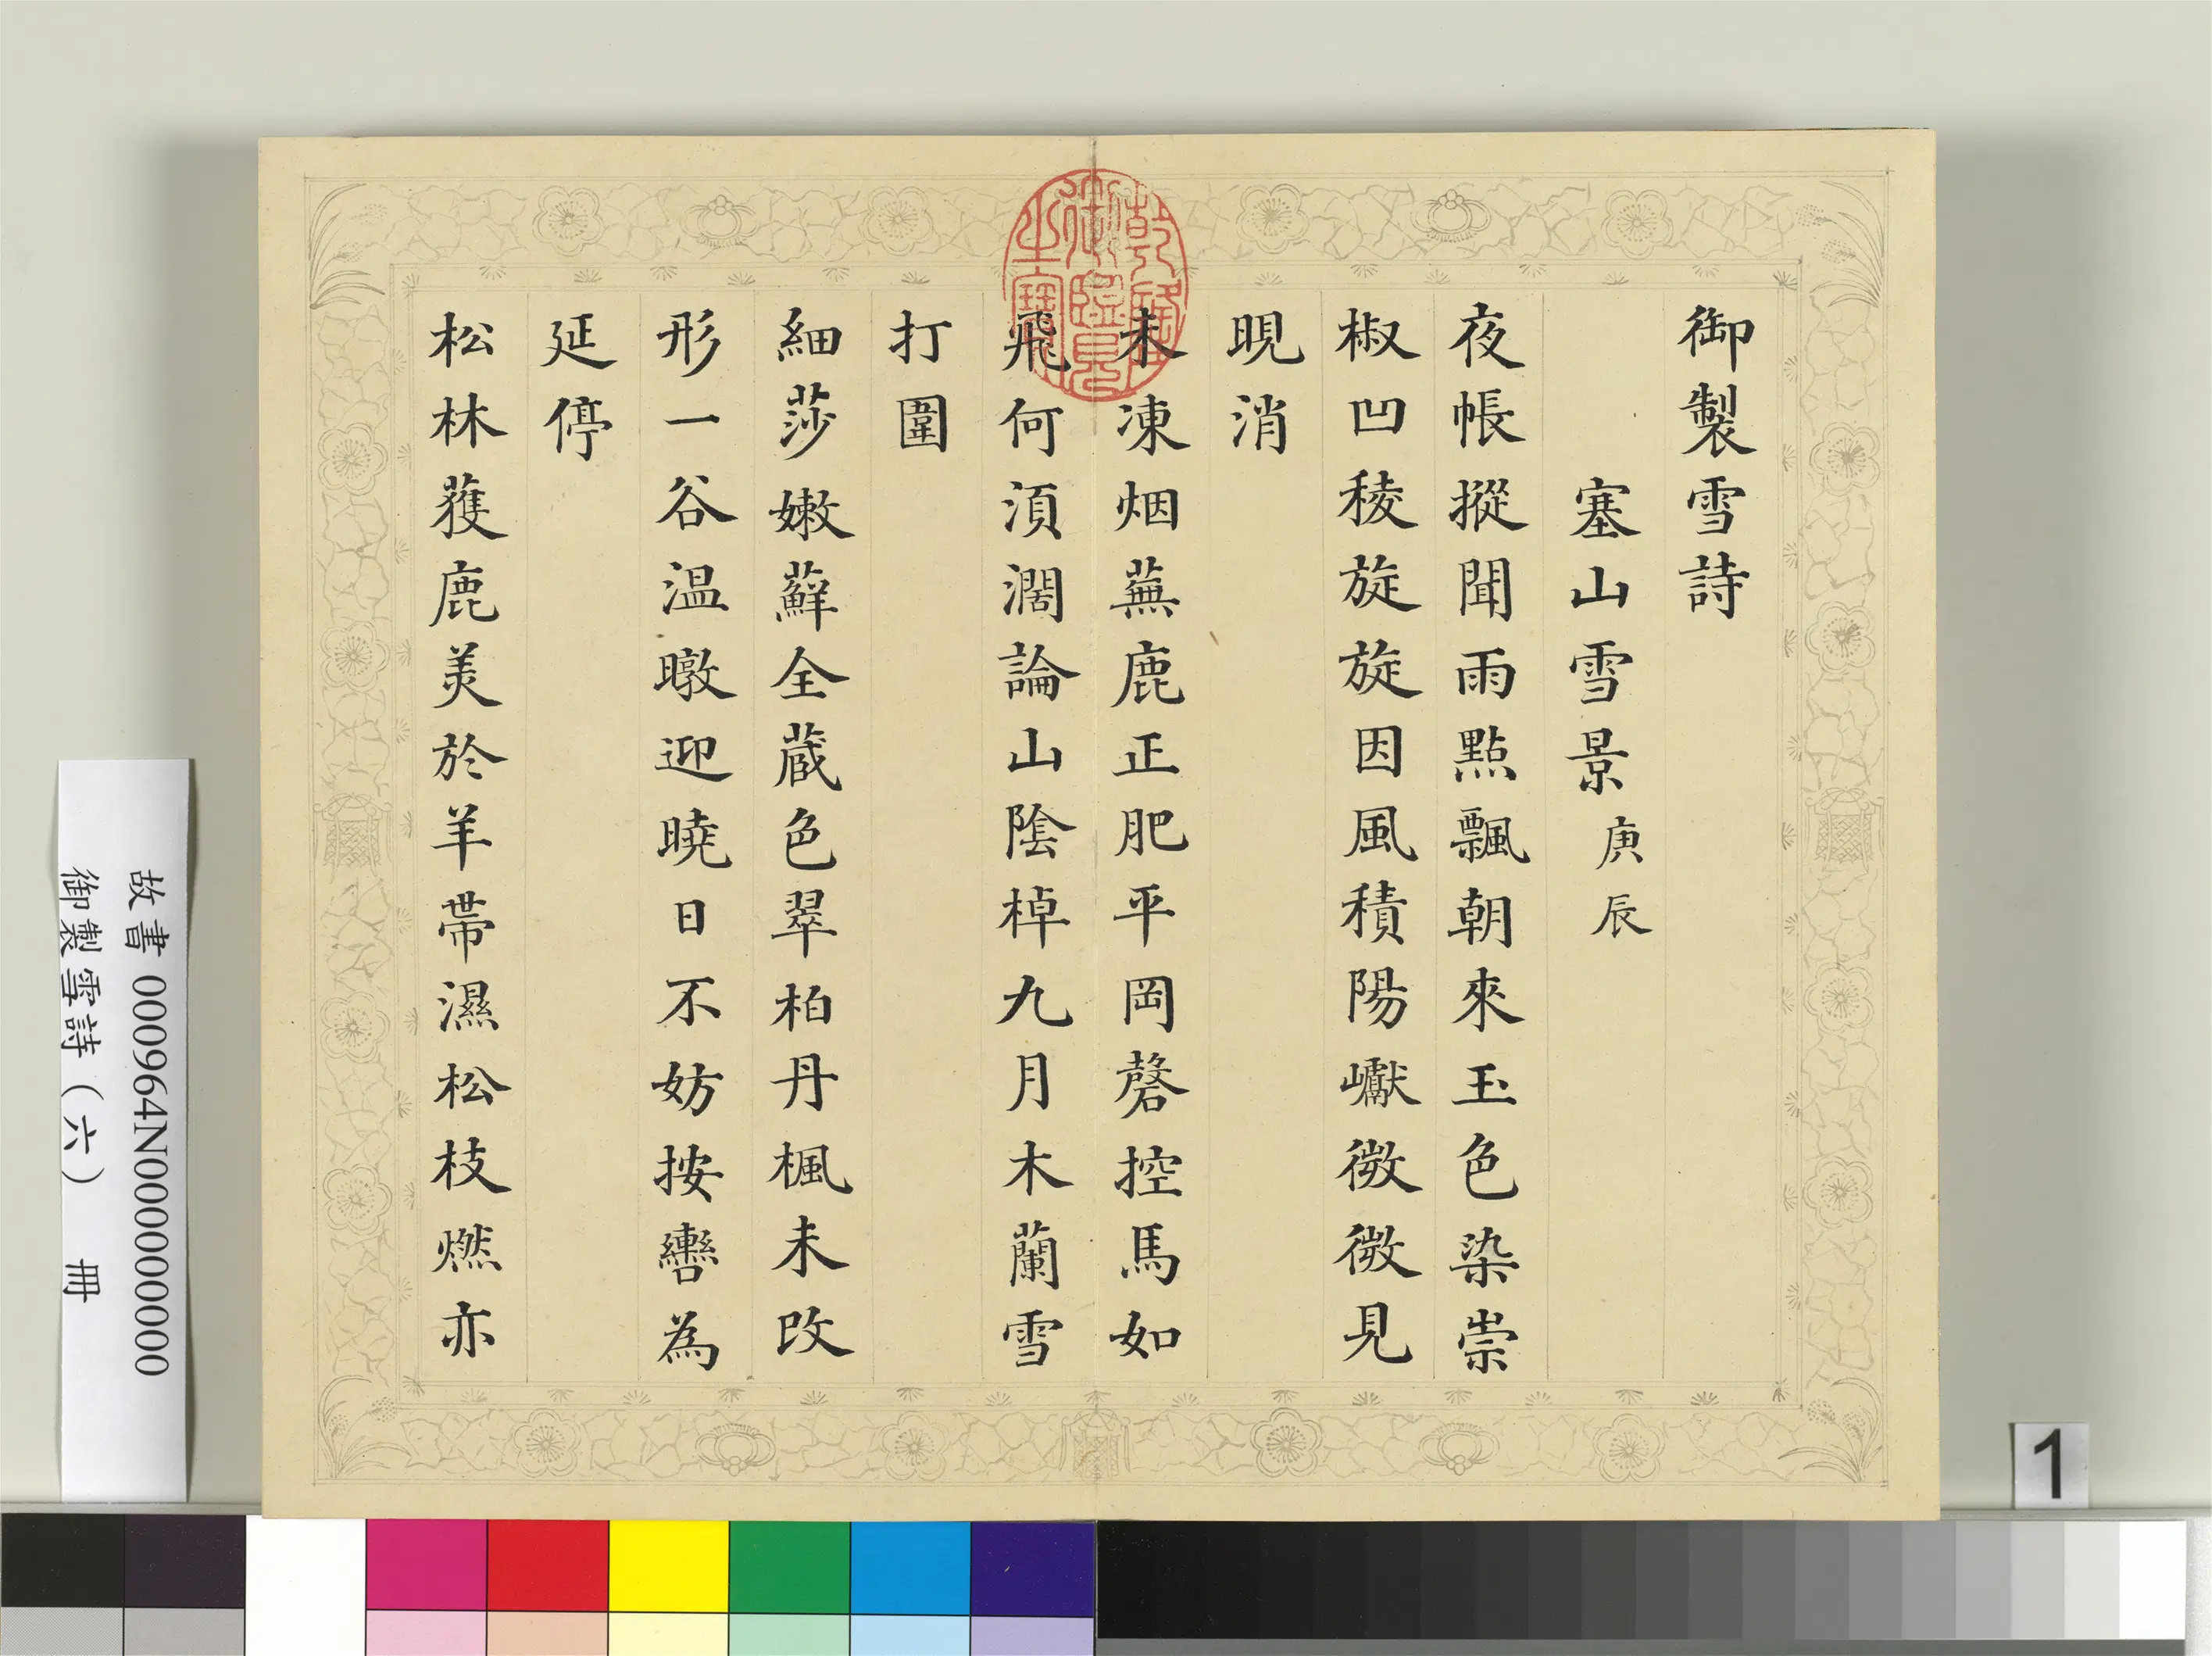 御製雪詩
塞山雪景庚辰
夜帳摐聞雨點飄朝來玉色染崇
椒凹稜旋旋因風積陽巘微微見
晛消
未凍烟蕪鹿正肥平岡磬控馬如
飛何須濶論山陰棹九月木蘭雪
打圍
細莎嫩蘚全蔵色翠柏丹楓未改
形一谷温暾迎曉日不妨按轡為
延停
松林獲鹿美於羊帶濕松枝燃亦
乾隆御覽之寶
故書 000964N000000000
御製雪詩（六） 冊
1